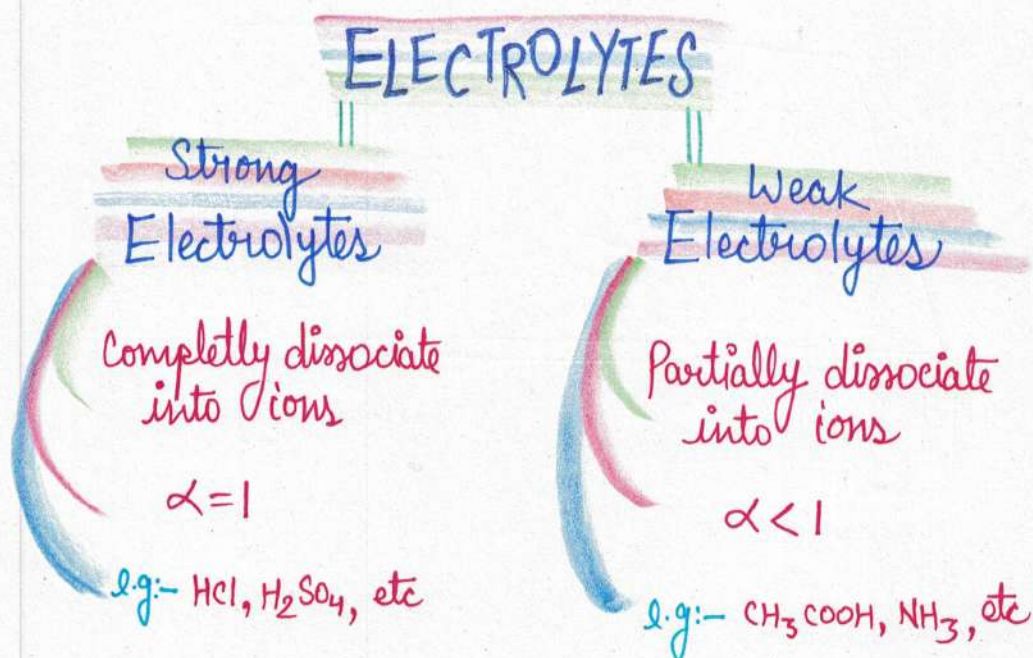 ELECTROLYTES
Strong
Electrolytes
Completly dissociate
into ions
α=1
e.g:- HCl, H₂SO₄, etc
Weak
Electrolytes
Partially dissociate
into ions
α<1
e.g:- CH₃COOH, NH₃, etc